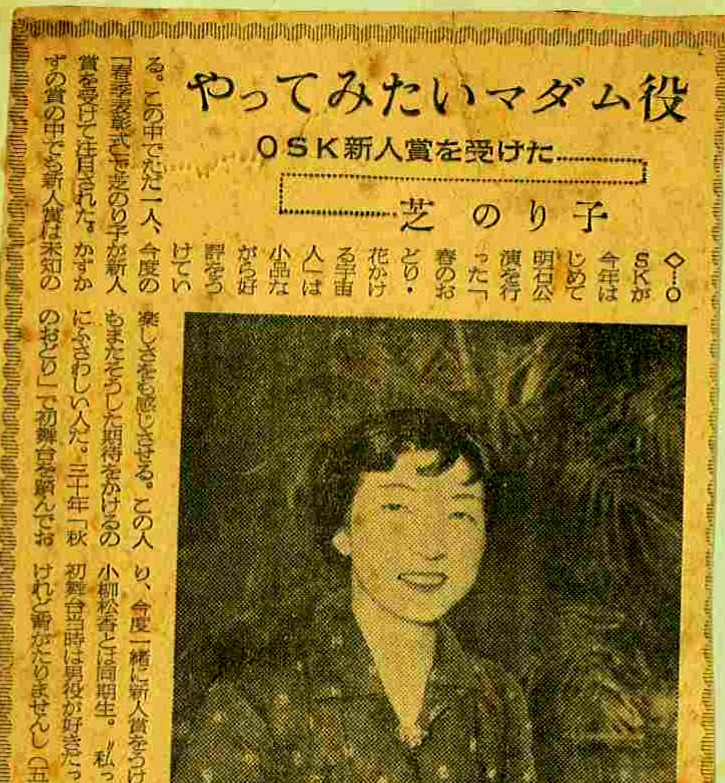 やってみたいマダム役
OSK新人賞を受けた
芝のり子
◇…O
SKが
今年は
じめて
明石公
演を行
った「
春のお
どり・
花かけ
る宇宙
人」は
小品な
がら好
評をう
けてい
る。この中でただ一人、今度の
「春季表彰式」で芝のり子が新人
賞を受けて注目された。かずか
ずの賞の中でも新人賞は未知の
楽しさをも感じさせる。この人
もまたそうした期待をかけるの
にふさわしい人だ。三十年「秋
のおどり」で初舞台を踏んでお
り、今度一緒に新人賞をうけ
小柳松香とは同期生。〃私っ
初舞台当時は男役が好きだっ
けれど背がたりませんし(五